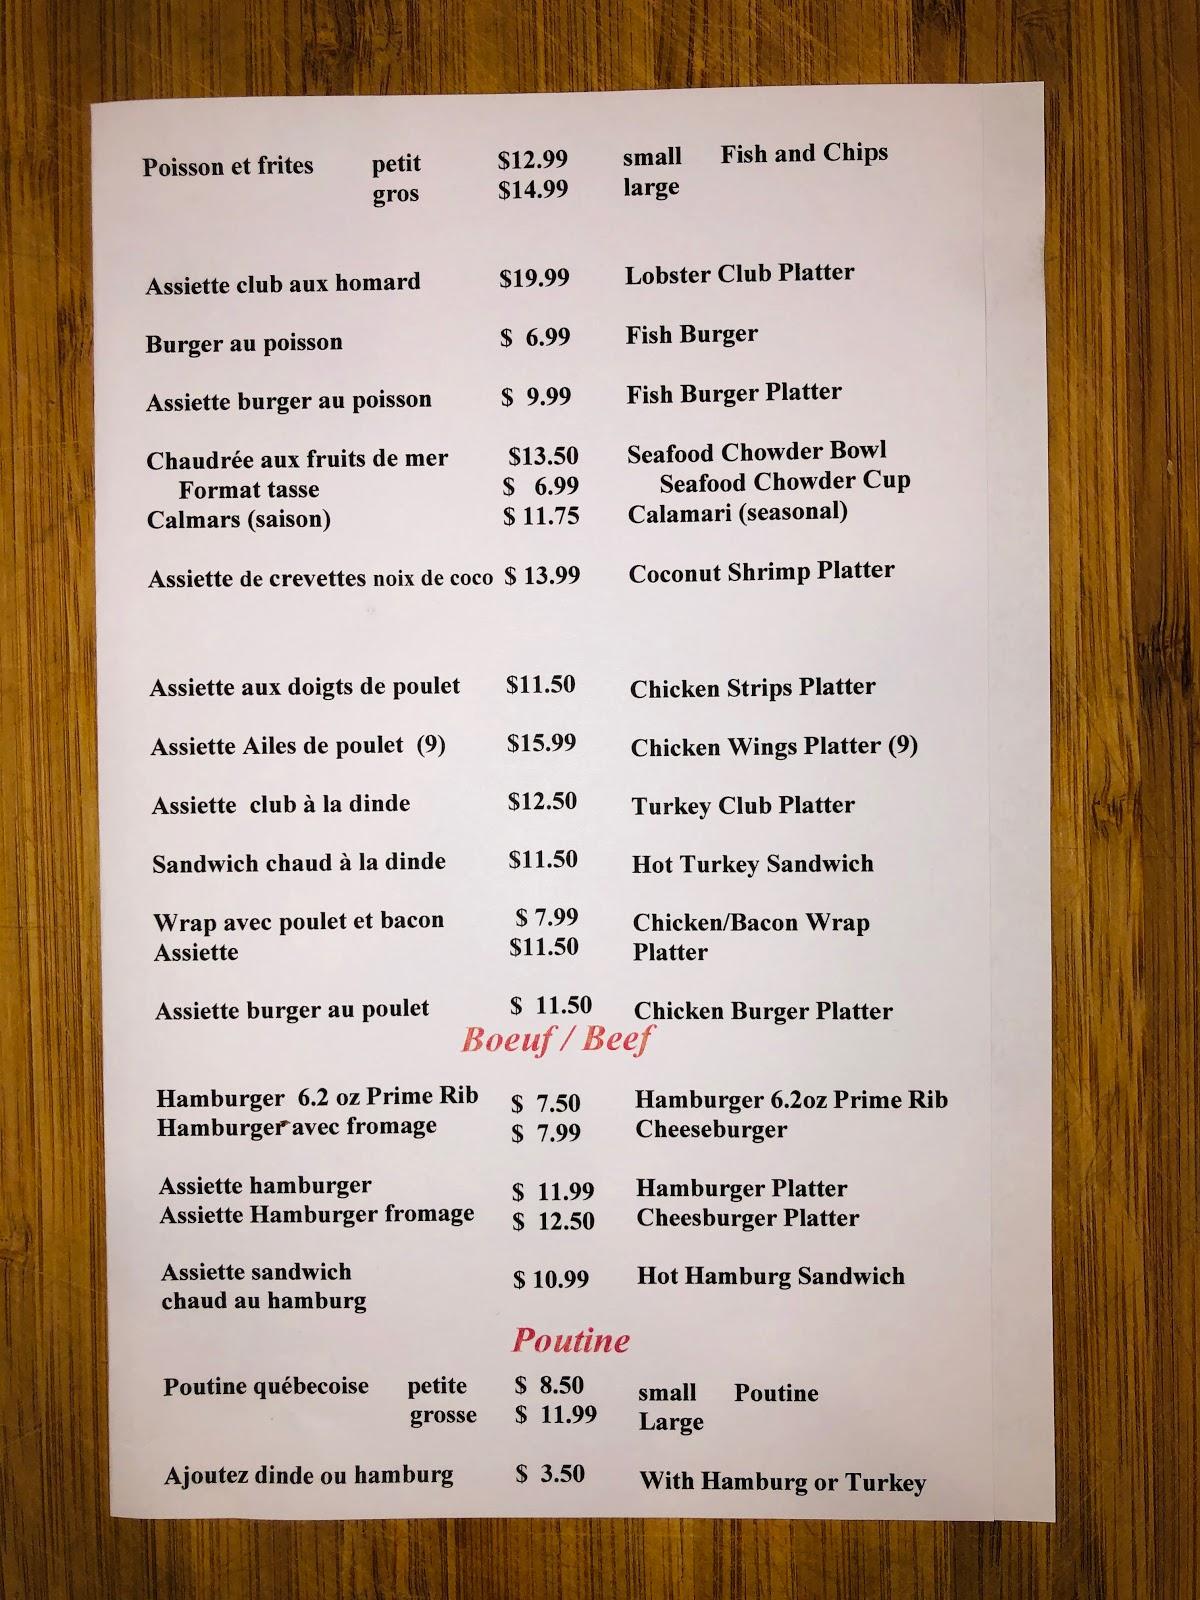 Poisson et frites petit $12.99 small Fish and Chips
gros $14.99 large
Assiette club aux homard $19.99 Lobster Club Platter
Burger au poisson $ 6.99 Fish Burger
Assiette burger au poisson $ 9.99 Fish Burger Platter
Chaudrée aux fruits de mer $13.50 Seafood Chowder Bowl
Format tasse $ 6.99 Seafood Chowder Cup
Calmars (saison) $ 11.75 Calamari (seasonal)
Assiette de crevettes noix de coco $ 13.99 Coconut Shrimp Platter
Assiette aux doigts de poulet $11.50 Chicken Strips Platter
Assiette Ailes de poulet (9) $15.99 Chicken Wings Platter (9)
Assiette club à la dinde $12.50 Turkey Club Platter
Sandwich chaud à la dinde $11.50 Hot Turkey Sandwich
Wrap avec poulet et bacon $ 7.99 Chicken/Bacon Wrap
Assiette $11.50 Platter
Assiette burger au poulet $ 11.50 Chicken Burger Platter
Boeuf / Beef
Hamburger 6.2 oz Prime Rib $ 7.50 Hamburger 6.2oz Prime Rib
Hamburger avec fromage $ 7.99 Cheeseburger
Assiette hamburger $ 11.99 Hamburger Platter
Assiette Hamburger fromage $ 12.50 Cheesburger Platter
Assiette sandwich $ 10.99 Hot Hamburg Sandwich
chaud au hamburg
Poutine
Poutine québecoise petite $ 8.50 small Poutine
grosse $ 11.99 Large
Ajoutez dinde ou hamburg $ 3.50 With Hamburg or Turkey